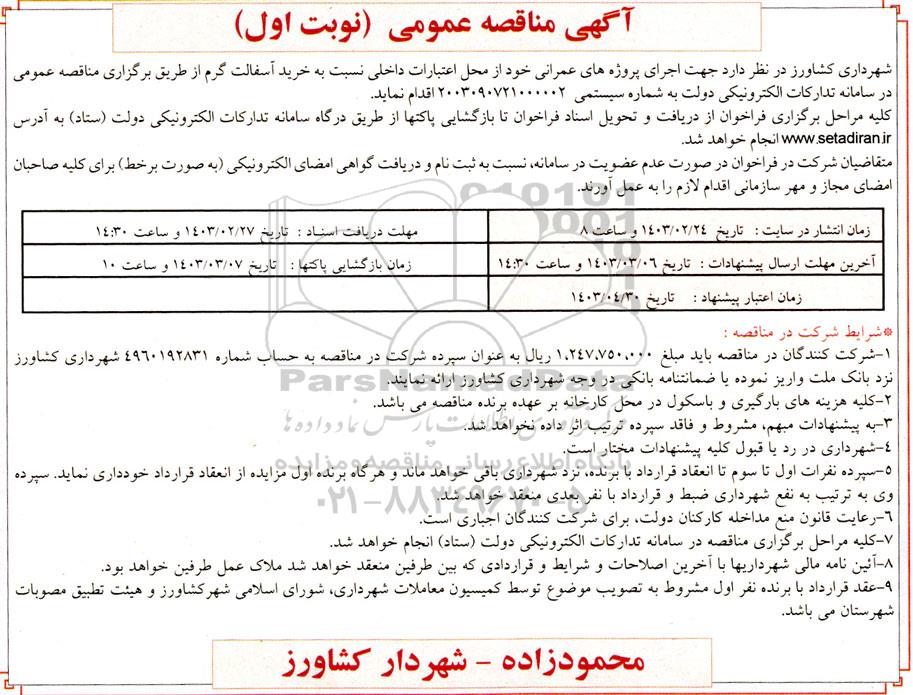 آگهی مناقصه عمومی (نوبت اول)
شهرداری کشاورز در نظر دارد جهت اجرای پروژه های عمرانی خود از محل اعتبارات داخلی نسبت به خرید آسفالت گرم از طریق برگزاری مناقصه عمومی
در سامانه تدارکات الکترونیکی دولت به شماره سیستمی ۲۰۰۳۰۹۰۷۲۱۰۰۰۰۰۲ اقدام نماید.
کلیه مراحل برگزاری فراخوان از دریافت و تحویل اسناد فراخوان تا بازگشایی پاکتها از طریق درگاه سامانه تدارکات الکترونیکی دولت (ستاد) به آدرس
www.setadiran.ir انجام خواهد شد.
متقاضیان شرکت در فراخوان در صورت عدم عضویت در سامانه، نسبت به ثبت نام و دریافت گواهی امضای الکترونیکی (به صورت برخط) برای کلیه صاحبان
امضای مجاز و مهر سازمانی اقدام لازم را به عمل آورند.
زمان انتشار در سایت : تاریخ ۱۴۰۳/۰۲/۲۴ و ساعت ۸
مهلت دریافت اسناد : تاریخ ۱۴۰۳/۰۲/۲۷ و ساعت ۱۴:۳۰
آخرین مهلت ارسال پیشنهادات : تاریخ ۱۴۰۳/۰۳/۰۶ و ساعت ۱۴:۳۰
زمان بازگشایی پاکتها : تاریخ ۱۴۰۳/۰۳/۰۷ و ساعت ۱۰
زمان اعتبار پیشنهاد : تاریخ ۱۴۰۳/۰۴/۳۰
*شرایط شرکت در مناقصه :
۱-شرکت کنندگان در مناقصه باید مبلغ ۱،۲۴۷،۷۵۰،۰۰۰ ریال به عنوان سپرده شرکت در مناقصه به حساب شماره ۴۹۶۰۱۹۲۸۳۱ شهرداری کشاورز
نزد بانک ملت واریز نموده یا ضمانتنامه بانکی در وجه شهرداری کشاورز ارائه نمایند.
۲-کلیه هزینه های بارگیری و باسکول در محل کارخانه بر عهده برنده مناقصه می باشد.
۳-به پیشنهادات مبهم، مشروط و فاقد سپرده ترتیب اثر داده نخواهد شد.
۴-شهرداری در رد یا قبول کلیه پیشنهادات مختار است.
۵-سپرده نفرات اول تا سوم تا انعقاد قرارداد با برنده، نزد شهرداری باقی خواهد ماند و هرگاه برنده اول مزایده از انعقاد قرارداد خودداری نماید. سپرده
وی به ترتیب به نفع شهرداری ضبط و قرارداد با نفر بعدی منعقد خواهد شد.
۶-رعایت قانون منع مداخله کارکنان دولت، برای شرکت کنندگان اجباری است.
۷-کلیه مراحل برگزاری مناقصه در سامانه تدارکات الکترونیکی دولت (ستاد) انجام خواهد شد.
۸-آئین نامه مالی شهرداریها با آخرین اصلاحات و شرایط و قراردادی که بین طرفین منعقد خواهد شد ملاک عمل طرفین خواهد بود.
۹-عقد قرارداد با برنده نفر اول مشروط به تصویب موضوع توسط کمیسیون معاملات شهرداری، شورای اسلامی شهرکشاورز و هیئت تطبیق مصوبات
شهرستان می باشد.
محمودزاده - شهردار کشاورز
ParsNamadData
پایگاه اطلاع رسانی مناقصه و مزایده
۰۲۱-۸۸۳۴۹۶۷۰-۵